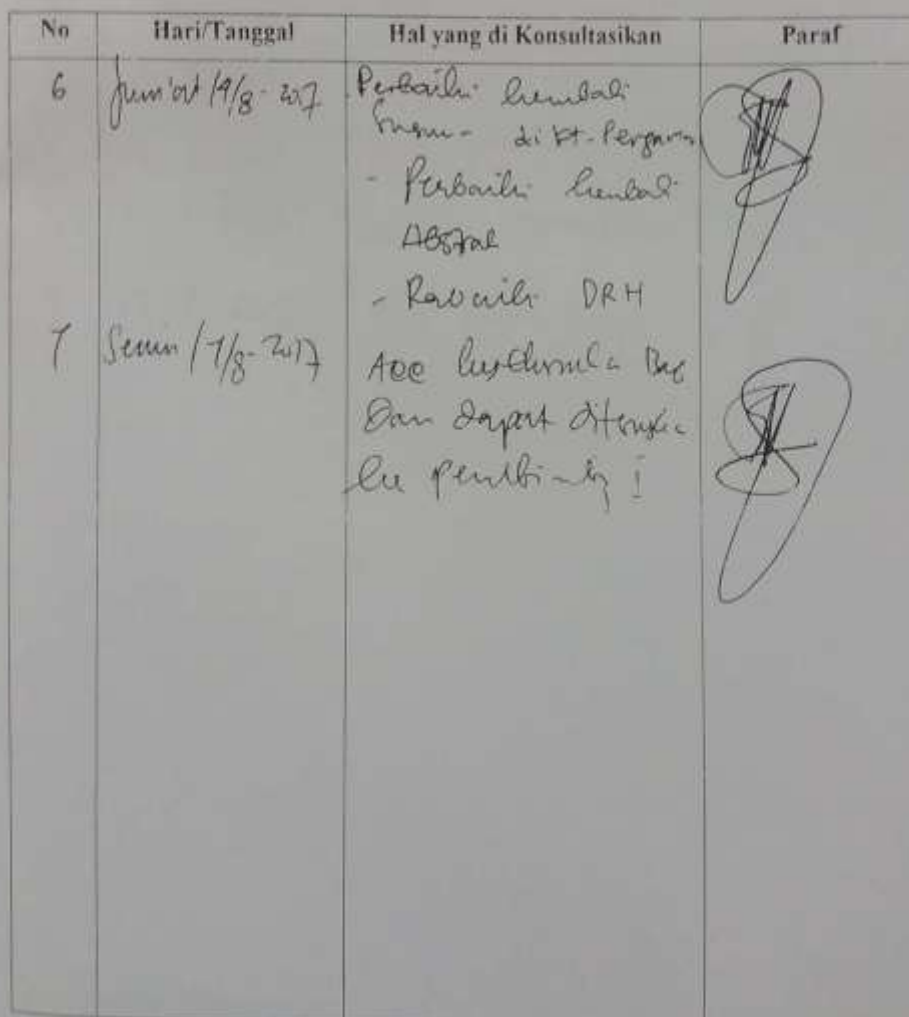 No Hari/Tanggal Hal yang di Konsultasikan Paraf
6 Jum'at /4/8- 2017 Perbaiki kembali
di kt-Pengantar
- Perbaiki kembali
Abstrak
- Perbaiki DRH
7 Senin /7/8- 2017 Acc keseluruhan Bab
Dan dapat diteruskan
ke pembimbing I